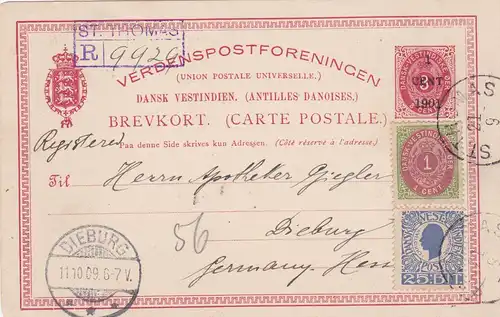 ST. THOMAS
R 9920
VERDENSPOSTFORENINGEN
(UNION POSTALE UNIVERSELLE.)
DANSK VESTINDIEN. (ANTILLES DANOISES.)
BREVKORT. (CARTE POSTALE.)
Paa denne Side skrives kun Adressen. (Côté réservé à l'adresse.)
1
CENT
1901
Registered
Til Herrn Apotheker Giegler
Dieburg
Germany-Hess
56
DIEBURG
11.10.09.6-7V.
1
1 CENT
25 BIT